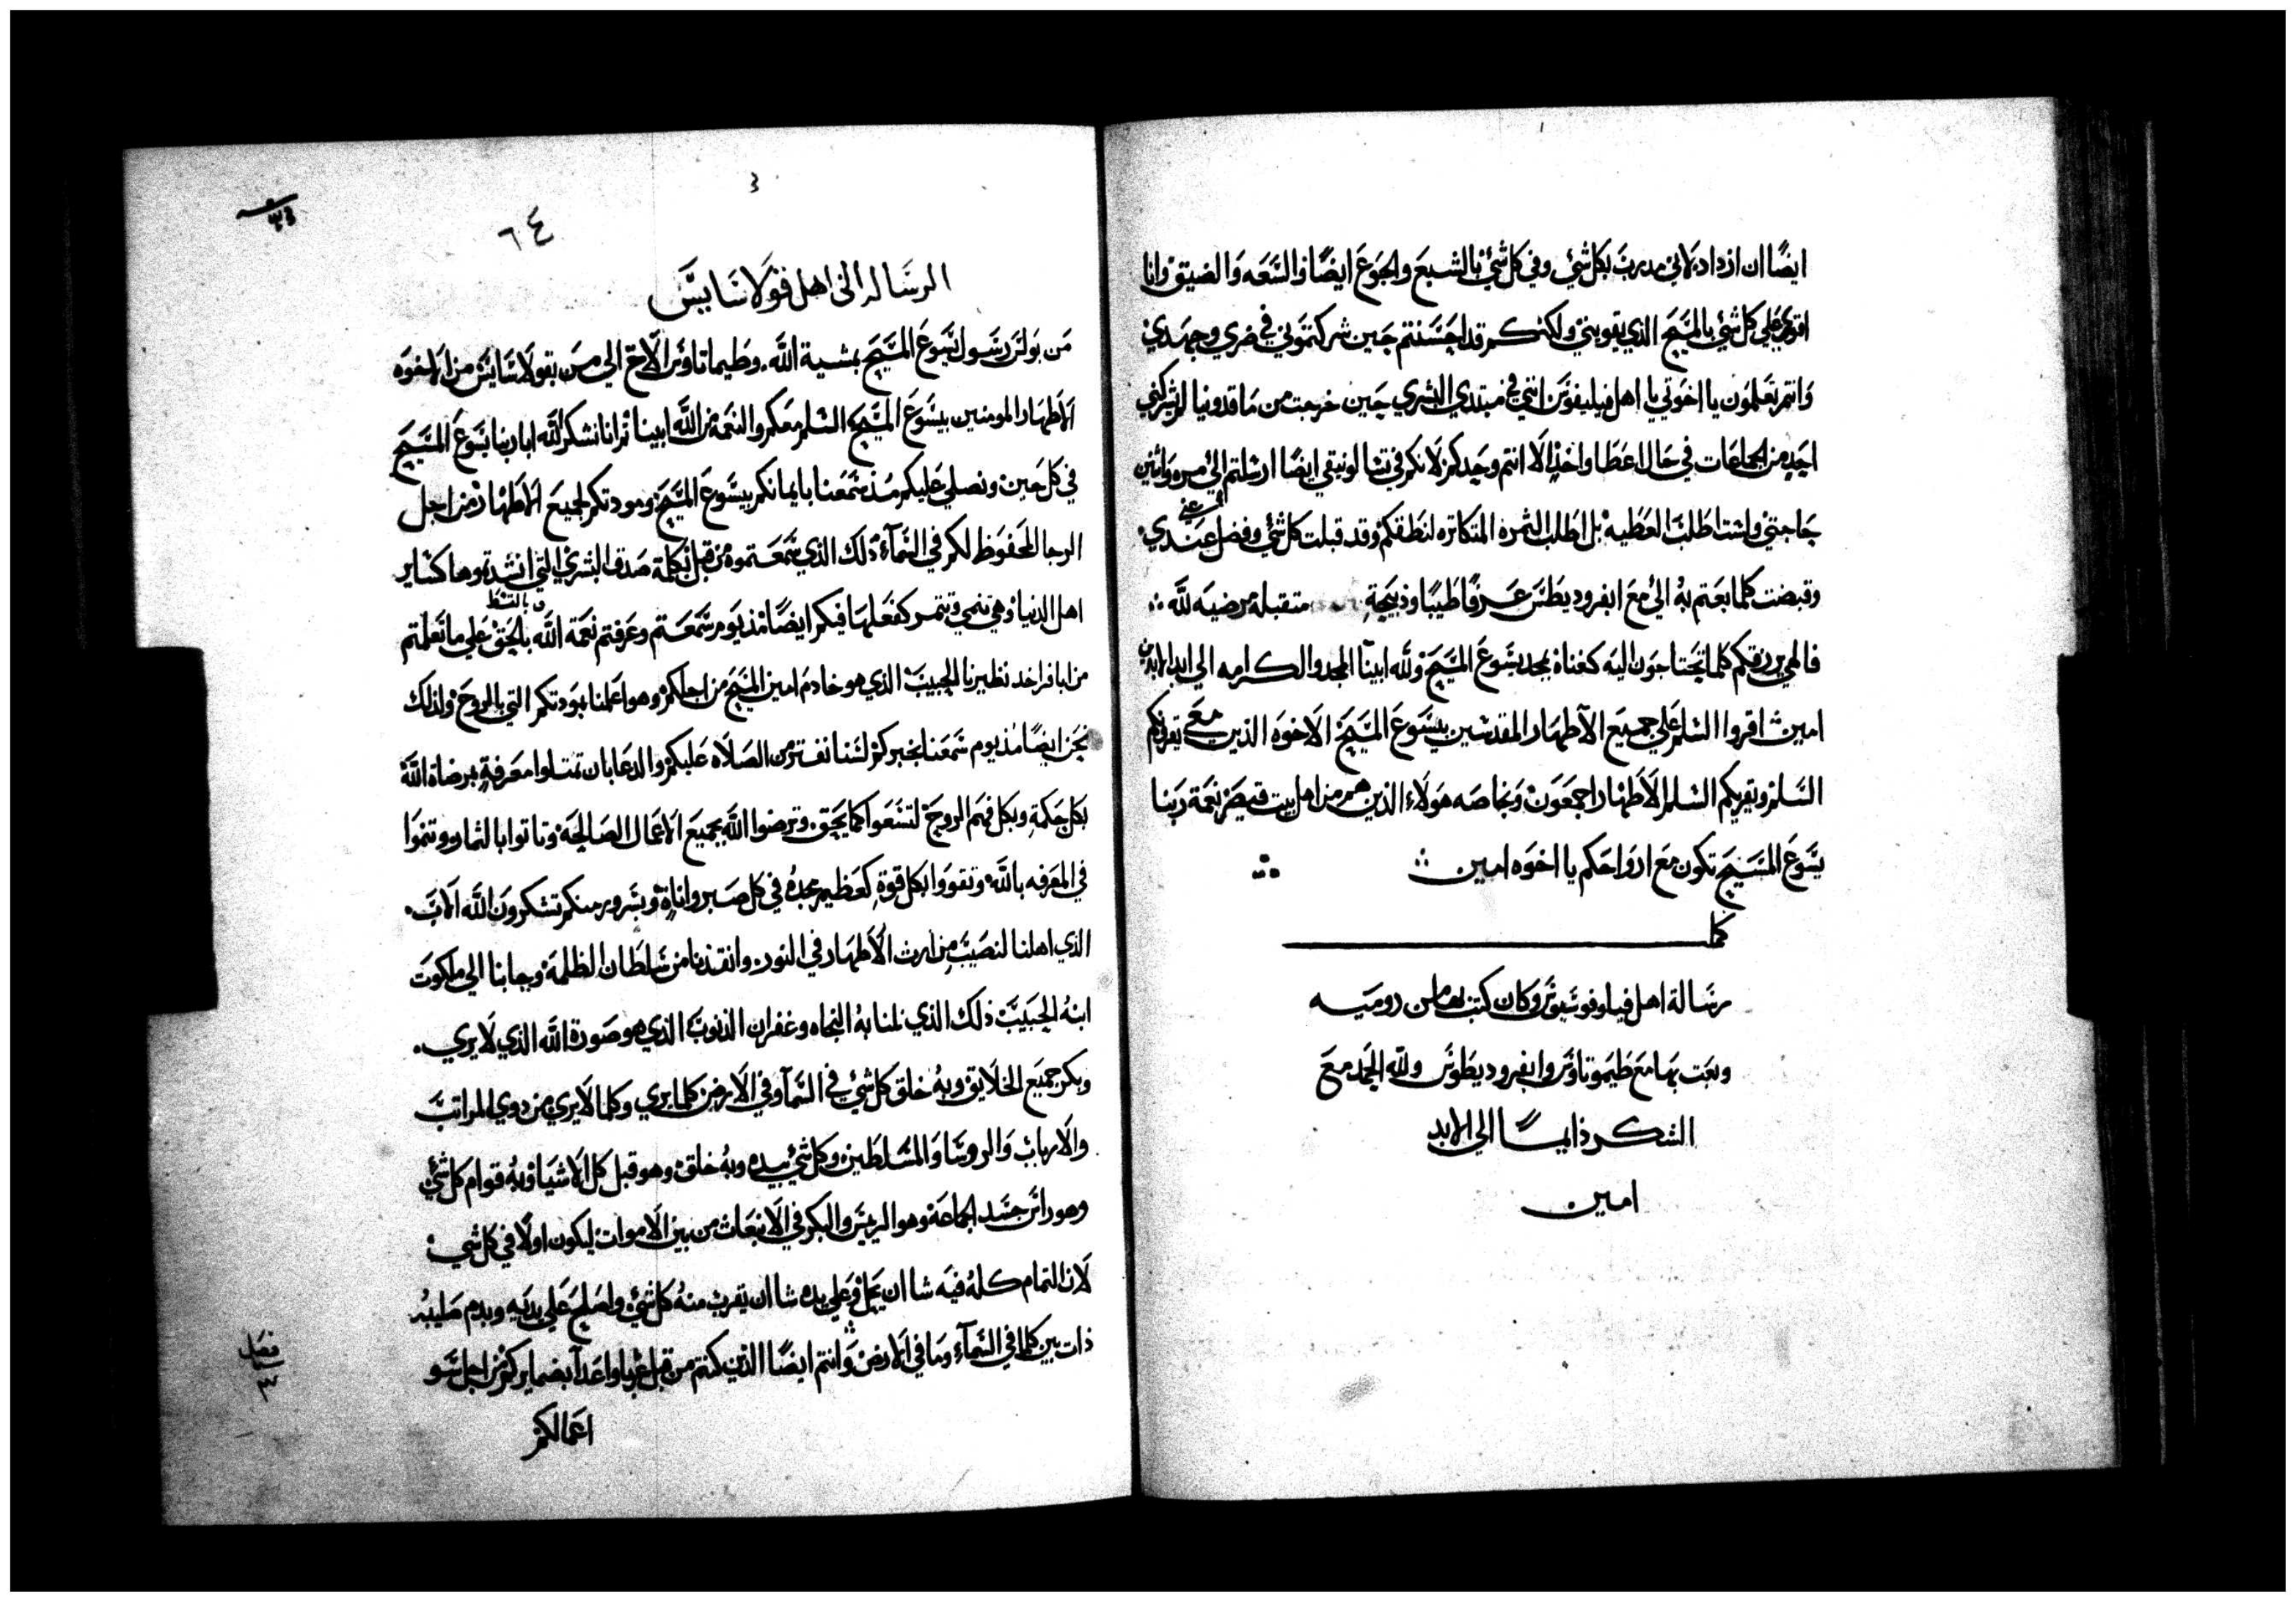 ايضًا ان ازداد لاني مدرب بكل شي وفي كل شي بالشبع والجوع ايضًا والسعه والضيق وانا
اقوي علي كل شي بالمسيح الذي يقويني ولكنكم قد احسنتم حين شركتموني في ضري وجهدي
وانتم تعلمون يا اخوتي يا اهل فيليفوس انني في مبتدي البشري حين خرجت من ماقدونيا لم يشركني
احد من الجماعات في حال اعطا واخذ الا انتم وحدكم لانكم في تسالونيقي ايضًا ارسلتم الي مره واثنين
حاجتي ولست اطلب العطيه بل اطلب الثمره المتكاثره لنطقكم وقد قبلت كل شي وفضل عندي
وقبضت كلما بعتم به الي مع ابفروديطس عرفًا طيبًا وذبيحة متقبله مرضيه لله
فالهي يرزقكم كلما تحتاجون اليه كغناه بمجد يسوع المسيح ولله ابينا المجد والكرامه الي ابد الابدين
امين اقروا السلم علي جميع الاطهار المقدسين بيسوع المسيح الاخوه الذين معي يقرونكم
السلم ويقريكم السلم الاطهار اجمعون وبخاصه هولاء الذين هم من اهل بيت قيصر نعمة ربنا
يسوع المسيح تكون مع ارواحكم يا اخوه امين
كمل
رسالة اهل فيلوفوسيوس وكان كتب بها من روميه
وبعت بها مع طيموتاوس وابفروديطوس ولله الحمد مع
الشكر دايمًا الي الابد
امين
٦٤
الرساله الي اهل قولاسايس
من بولس رسول يسوع المسيح بمشية الله وطيماتاوس الاخ الي من بقولاسايس من الاخوه
الاطهار المومنين بيسوع المسيح السلم معكم والنعمة من الله ابينا ثم انا نشكر الله ابا ربنا يسوع المسيح
في كل حين ونصلي عليكم مذ سمعنا بايمانكم بيسوع المسيح ومودتكم لجميع الاطهار من اجل
الرجا المحفوظ لكم في السماء ذلك الذي سمعتموه من قبل بكلمة صدق البشري التي كساير
اهل الدنيا وهي تنمي وتثمر كفعلها فيكم ايضًا مذ يوم سمعتم وعرفتم نعمة الله بالحق علي ما تعلمتم
من ابافراخد نظيرنا الحبيب الذي هو خادم امين المسيح من اجلكم وهو اعلمنا بمودتكم التي بالروح ولذلك
نحن ايضًا مذ يوم سمعنا بخبركم لسنا نفتر من الصلاه عليكم والدعا بان تمتلوا معرفة برضاة الله
بكل حكمة وبكل فهم الروح لتسعوا كما يحق وترضوا الله بجميع الاعمال الصالحة وتاتوا بالثمار وتنموا
في المعرفه بالله وتقووا بكل قوة كعظيم مجده في كل صبر واناة وبسرور منكم تشكرون الله الاب
الذي اهلنا لنصيب من ارث الاطهار في النور وانقذنا من سلطان الظلمة وجابنا الي ملكوت
ابنه الحبيب ذلك الذي نلنا به النجاه وغفران الذنوب الذي هو صورة الله الذي لا يري
وبكر جميع الخلايق وبه خلق كل شي في السماء وفي الارض كلما يري وكلما لا يري من دوي المراتب
والارباب والروسا والمسلطين وكل شي بيده وبه خلق وهو قبل كل الاشيا وبه قوام كل شي
وهو راس جسد الجماعة وهو الريس والبكر في الانبعاث من بين الاموات ليكون اولًا في كل شي
لان التمام كله فيه شا ان يحل وعلي يده شا ان يقرب منه كل شي واصلح علي يديه وبدم صليبه
ذات بين كلما في السماء وما في الارض وانتم ايضًا الذين كنتم من قبل غربا واعدا بضمايركم من اجل سو
فصل
٣
اعمالكم